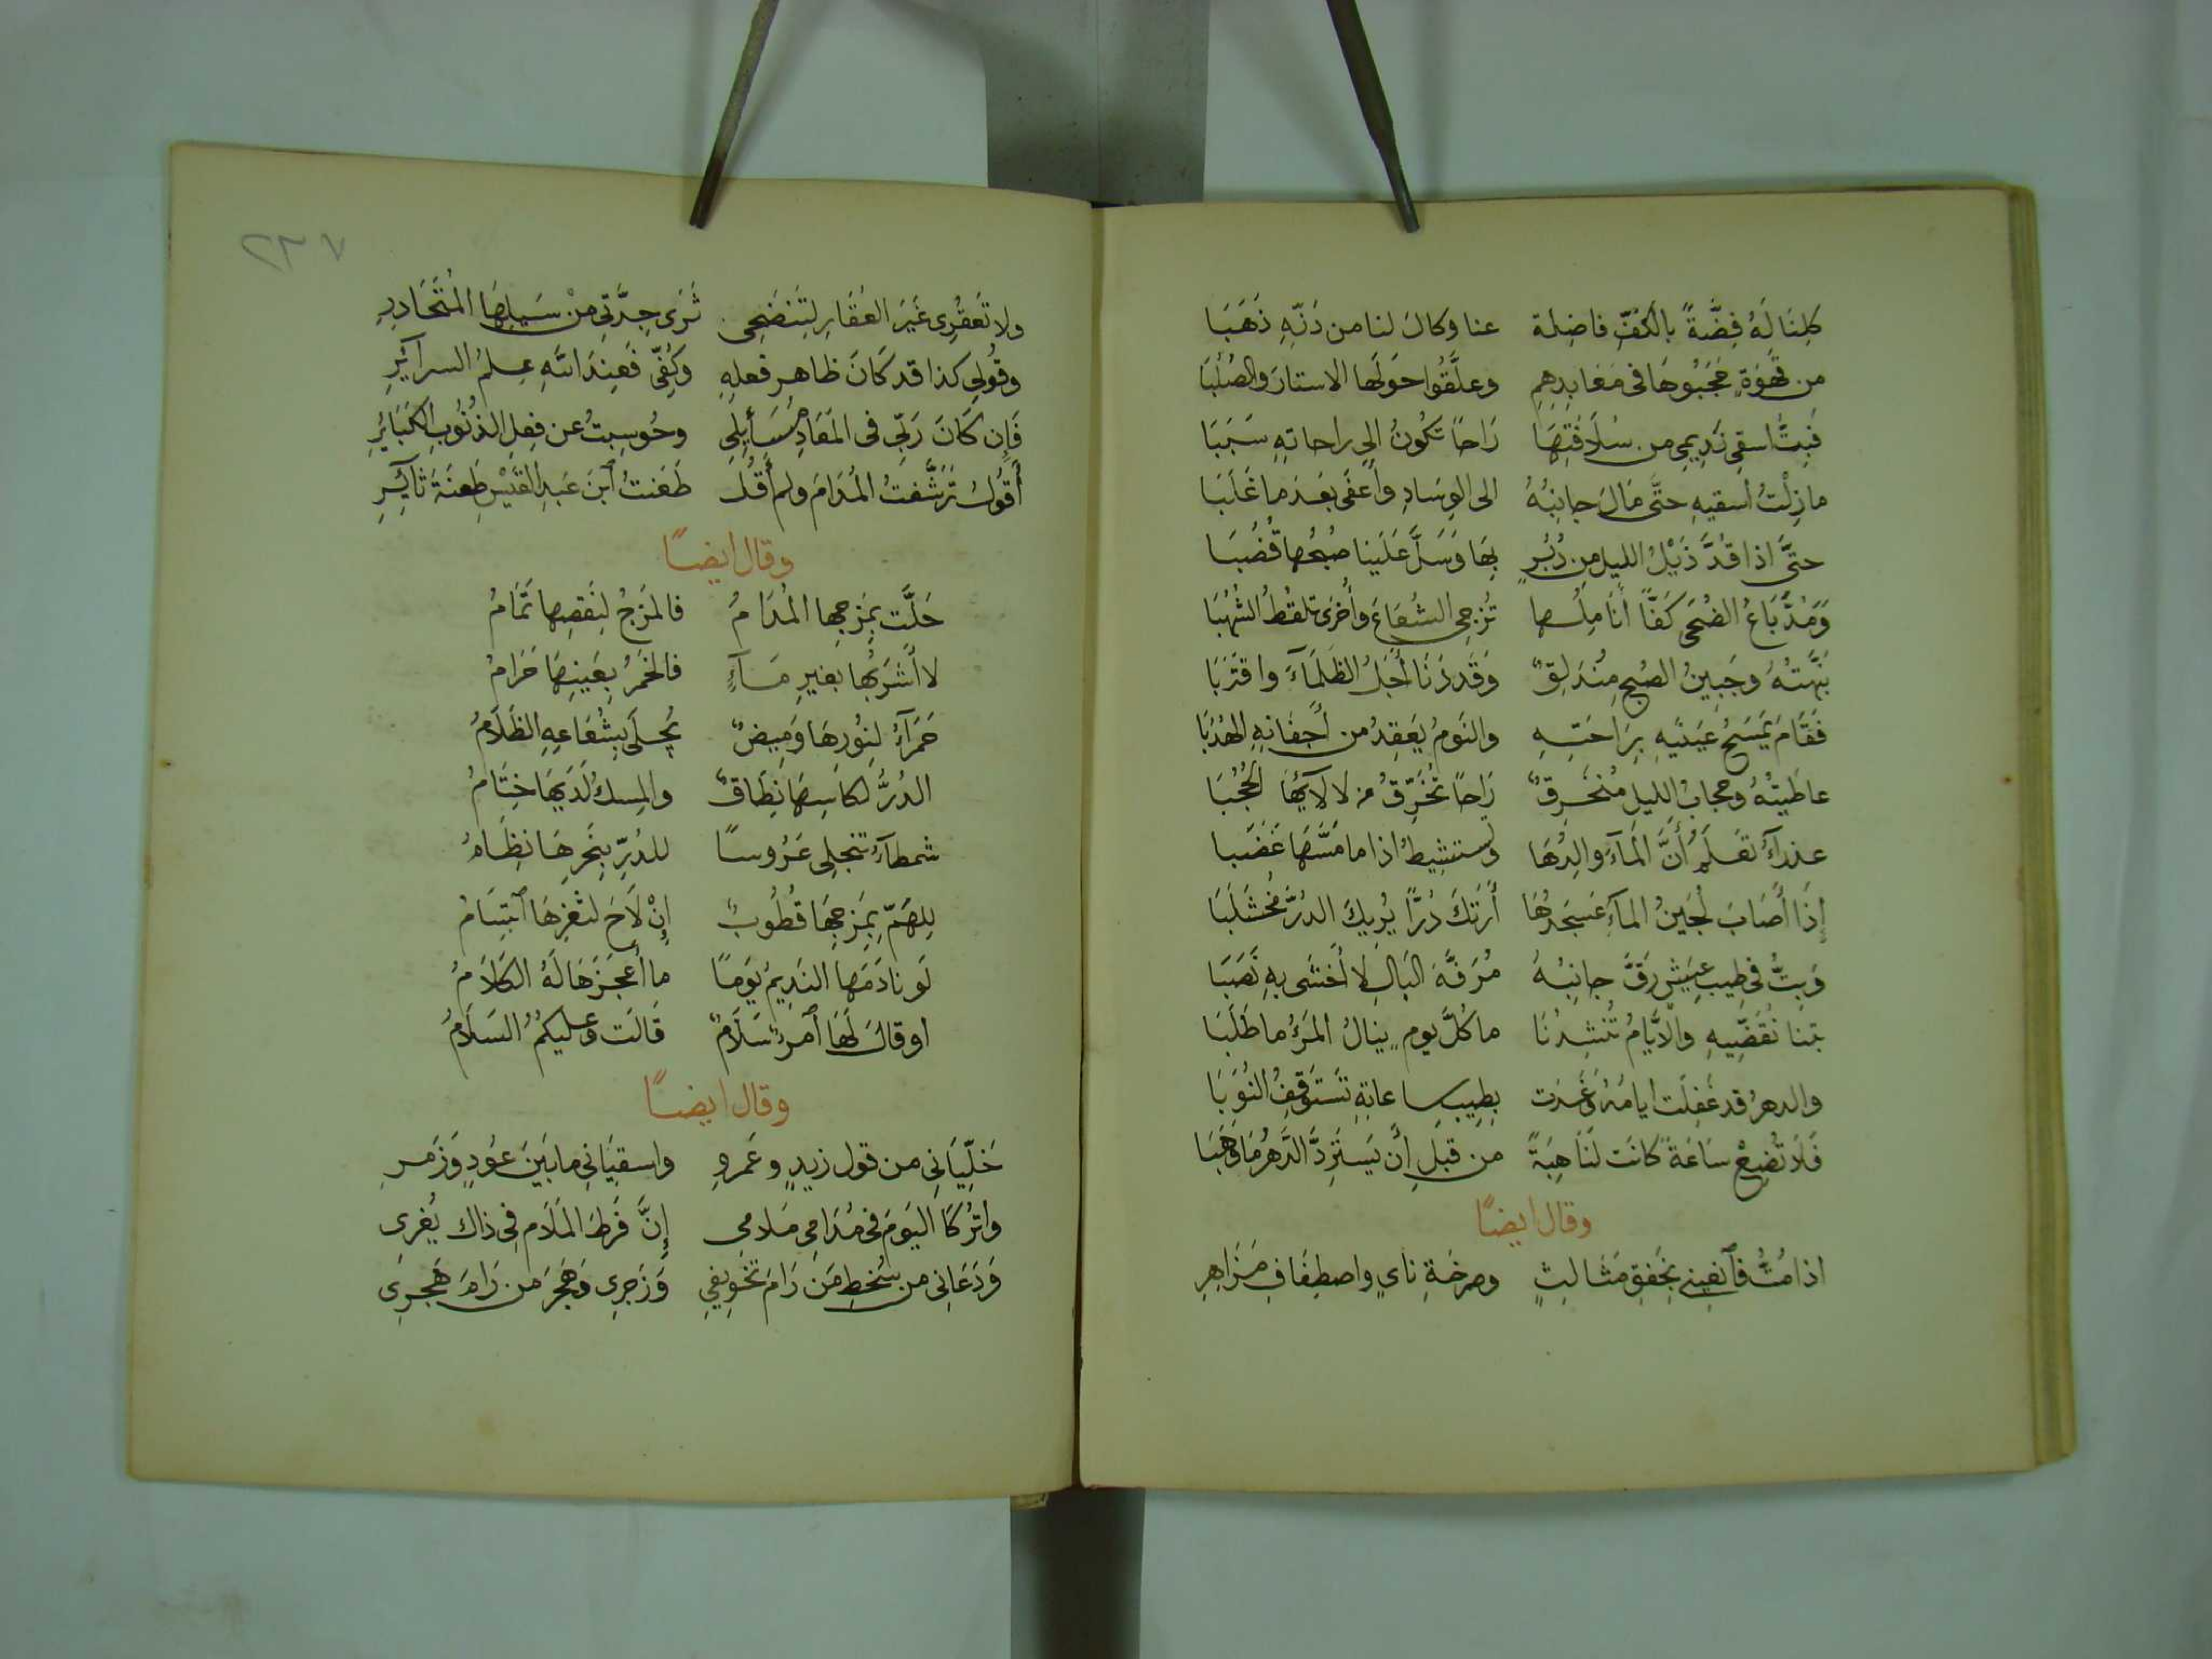 كِلنَا لَهُ فِضَّةً بالكَفِّ فاضِلة عنا وكالَ لنا من دَنّهِ ذَهَبَا
من قَهوَةٍ حَجَبُوهَا فى مَعَابِدِهِم وعلَّقُوا حَولَها الاستارَ والصُلُبَا
فَبِتُّ اسقِى نَدِيمِى من سُلَافَتِهَا رَاحاً تكُونُ الى راحاتِهِ سَبَبَا
ما زِلْتُ أسقيهِ حتَّى مَالَ جانِبُهُ الى الوِسَادِ وأَغفَى بعَدَ ما غَلَبَا
حتَّى اذا قُدَّ ذَيْلُ الليلِ مِن دُبُرٍ بِهَا وَسَلَّ عَلَينا صُبْحُها قُضُبَا
وَمَدَّ بَاعُ الضُحَى كَفًّا أنَامِلُها تُزجِى الشُعَاعَ وأُخرَى تلقُطُ الشُهُبَا
نَبَّهتُهُ وجَبِينُ الصُبحِ مِنُدَلِقٌ وَقَد دَنَا أَجَلُ الظَلمَآءَ واقتَرَبَا
فَقَامَ يَمْسَحُ عَينَيهِ بِرَاحَتِهِ والنَومُ يَعقِدُ من أَجفانِهِ الهُدُبَا
عاطَيتُهُ وحجابُ الليلِ مُنْخَرِقٌ رَاحاً تُخَرِّقُ من لالآئِهَا الحُجُبَا
عذرآءُ تعَلَمُ أَنَّ المآءَ والِدُهَا وتستشِيطُ اذا ما مَسَّهَا غَضَبا
إِذَا أَصَابَ لُجَينُ المآءِ عَسجَدُهَا أَرَتكَ دُرًّا يُرِيكَ الدُرَّ مَخشَلَبَا
وَبِتُّ فى طِيبِ عيشٍ رَقَّ جانِبُهُ مُرَفَّهَ البَالِ لَا أَخشَى بهِ نَصَبَا
بتنا نُقَضِّيهِ والأيَّامُ تُنْشِدُنَا ما كلَّ يومٍ ينالُ المَرءُ ما طَلَبَا
والدهرُ قد غَفِلَت أيامُهُ وَغَدَت بِطِيبِ ساعاتِهِ تَستَوقِفُ النُوَبَا
فَلَا تُضِيعْ سَاعَةً كانَت لَنَا هِبَةً من قبلِ أَن يَستَرِدَّ الدَّهرُ مَا وَهَبَا
وقال ايضاً
اذا مُتُّ فٱنعِينى بِخَفقِ مَثَالِثٍ وصرخَةِ نايٍ واصطِفَافِ مَزَاهِرِ
٢٣٧
ولا تَعقُرِى غَيرَ العُقَارِ لِتَنضَحِى ثَرَى جِدَّتِى من سَيلِهَا المُتَحَادِرِ
وقُولِى كذا قد كَانَ ظاهر فعلِهِ وكُفِّى فَعِندَ اللهِ عِلمُ السرآئِرِ
فَإِن كَانَ رَبِّى فى المَعَادِ مُسَآئِلِى وحُوسِبتُ عن فِعلِ الذُنُوبِ الكَبَائِرِ
أَقُولُ تَرَشَّفتُ المُدَامَ ولم أَقُل طَعَنتُ ٱبنَ عَبدِ القَيْسِ طَعنَةَ ثآئِرِ
وقال ايضاً
حَلَّت بِمَزجِها المُدَامُ فالمَزجُ لِنَقصِها تَمَامُ
لا أَشرَبُها بغيرِ مَآءٍ فالخَمرُ بِعَينِهَا حَرَامُ
حَمرَآءُ لِنُورِهَا وَمِيضٌ يُجلَى بِشُعَاعِهِ الظَلَامُ
الدُرُّ لكاسِهَا نِطَاقٌ والمِسكُ لَدَيهَا خِتَامُ
شمطآءُ تنجلِى عَرُوساً للدُرِّ بِنَحرِهَا نِظَامُ
لِلهَمِّ بِمَزجِهَا قُطُوبٌ إِنْ لَاحَ لثَغرِهَا ٱبتِسَامُ
لَو نادَمَها النَدِيمُ يَومًا ما أَعجَزَهَا لَهُ الكَلَامُ
او قالَ لَهَا ٱمرءٌ سَلَامٌ قَالَت وَعليكمُ السَلَامُ
وقال ايضاً
خَلِّيَانِى من قول زيدٍ وعَمرو واسقِيَانِى ما بَينَ عُودٍ وَزَمرِ
واترُكَا اليَومَ فى مُدَامِى مَلامِى إِنَّ فَرطَ المَلَامِ فِى ذاك يُغرِى
وَدَعَانِى من سُخطِ مَن رَامَ تَخوِيفِى وَزَجرِى وَهَجرَ من رَامَ هَجرِى